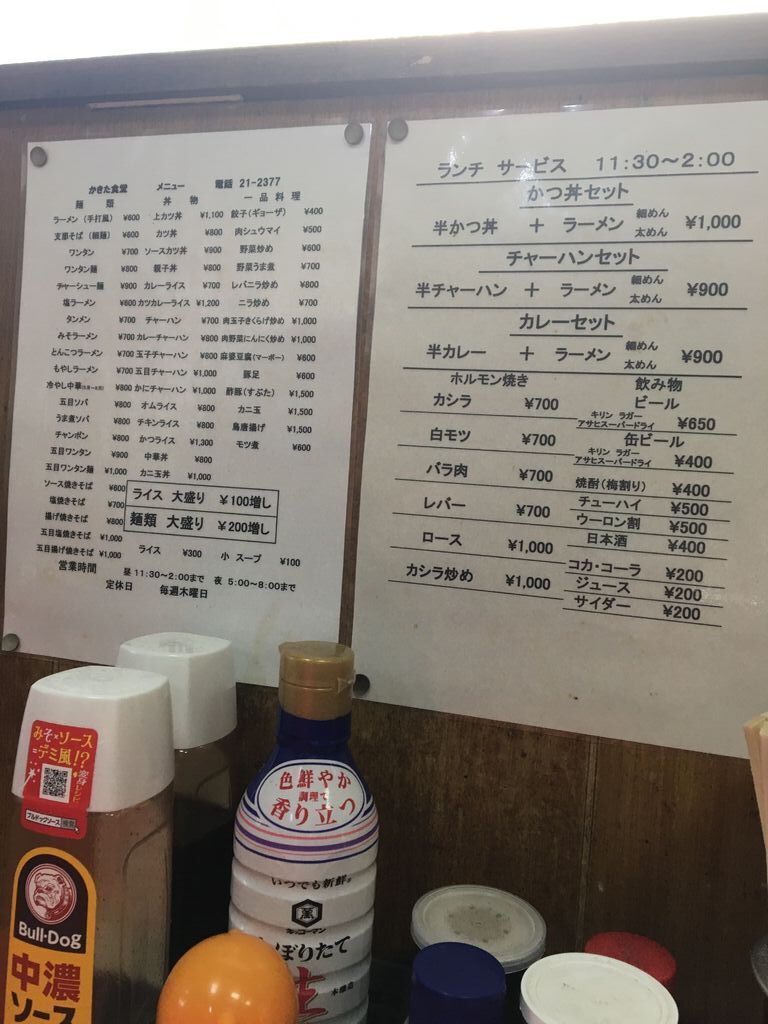 かきた食堂 メニュー 電話 21-2377
麺 類 丼 物 一 品 料 理
ラーメン（手打風） ¥600 上カツ丼 ¥1,100 餃子(ギョーザ) ¥400
支那そば（細麺） ¥600 カツ丼 ¥800 肉シュウマイ ¥500
ワンタン ¥700 ソースカツ丼 ¥900 野菜炒め ¥600
ワンタン麺 ¥800 親子丼 ¥800 野菜うま煮 ¥700
チャーシュー麺 ¥900 カレーライス ¥700 レバニラ炒め ¥800
塩ラーメン ¥600 カツカレーライス ¥1,200 ニラ炒め ¥700
タンメン ¥700 チャーハン ¥700 肉玉子きくらげ炒め ¥1,000
みそラーメン ¥700 カレーチャーハン ¥800 肉野菜にんにく炒め ¥1,000
とんこつラーメン ¥700 玉子チャーハン ¥800 麻婆豆腐(マーボー) ¥600
もやしラーメン ¥700 五目チャーハン ¥1,000 豚足 ¥600
冷やし中華 ¥800 かにチャーハン ¥1,000 酢豚(すぶた) ¥1,500
五目ソバ ¥800 オムライス ¥800 カニ玉 ¥1,500
うま煮ソバ ¥800 チキンライス ¥800 鳥唐揚げ ¥1,500
チャンポン ¥800 かつライス ¥1,300 モツ煮 ¥600
五目ワンタン ¥900 中華丼 ¥800
五目ワンタン麺 ¥1,000 カニ玉丼 ¥1,000
ソース焼きそば ¥600
塩焼きそば ¥700
揚げ焼きそば ¥800
五目塩焼きそば ¥1,000
五目揚げ焼きそば ¥1,000
ライス 大盛り ¥100増し
麺類 大盛り ¥200増し
ライス ¥300 小 スープ ¥100
営業時間 昼 11:30～2:00まで 夜 5:00～8:00まで
定休日 毎週木曜日
ランチ サービス 11:30～2:00
かつ丼セット
半かつ丼 ＋ ラーメン 細めん 太めん ¥1,000
チャーハンセット
半チャーハン ＋ ラーメン 細めん 太めん ¥900
カレーセット
半カレー ＋ ラーメン 細めん 太めん ¥900
ホルモン焼き
カシラ ¥700
白モツ ¥700
バラ肉 ¥700
レバー ¥700
ロース ¥1,000
カシラ炒め ¥1,000
飲み物
ビール
キリン ラガー
アサヒスーパードライ ¥650
缶ビール
キリン ラガー
アサヒスーパードライ ¥400
焼酎(梅割り) ¥400
チューハイ ¥500
ウーロン割 ¥500
日本酒 ¥400
コカ・コーラ ¥200
ジュース ¥200
サイダー ¥200
みそ×ソース
=デミ風!?
変身レシピ
ブルドックソース 検索
Bull-Dog
中濃
ソース
色鮮やか
調理で
香り立つ
いつでも新鮮
萬
キッコーマン
しぼりたて
生
本醸造